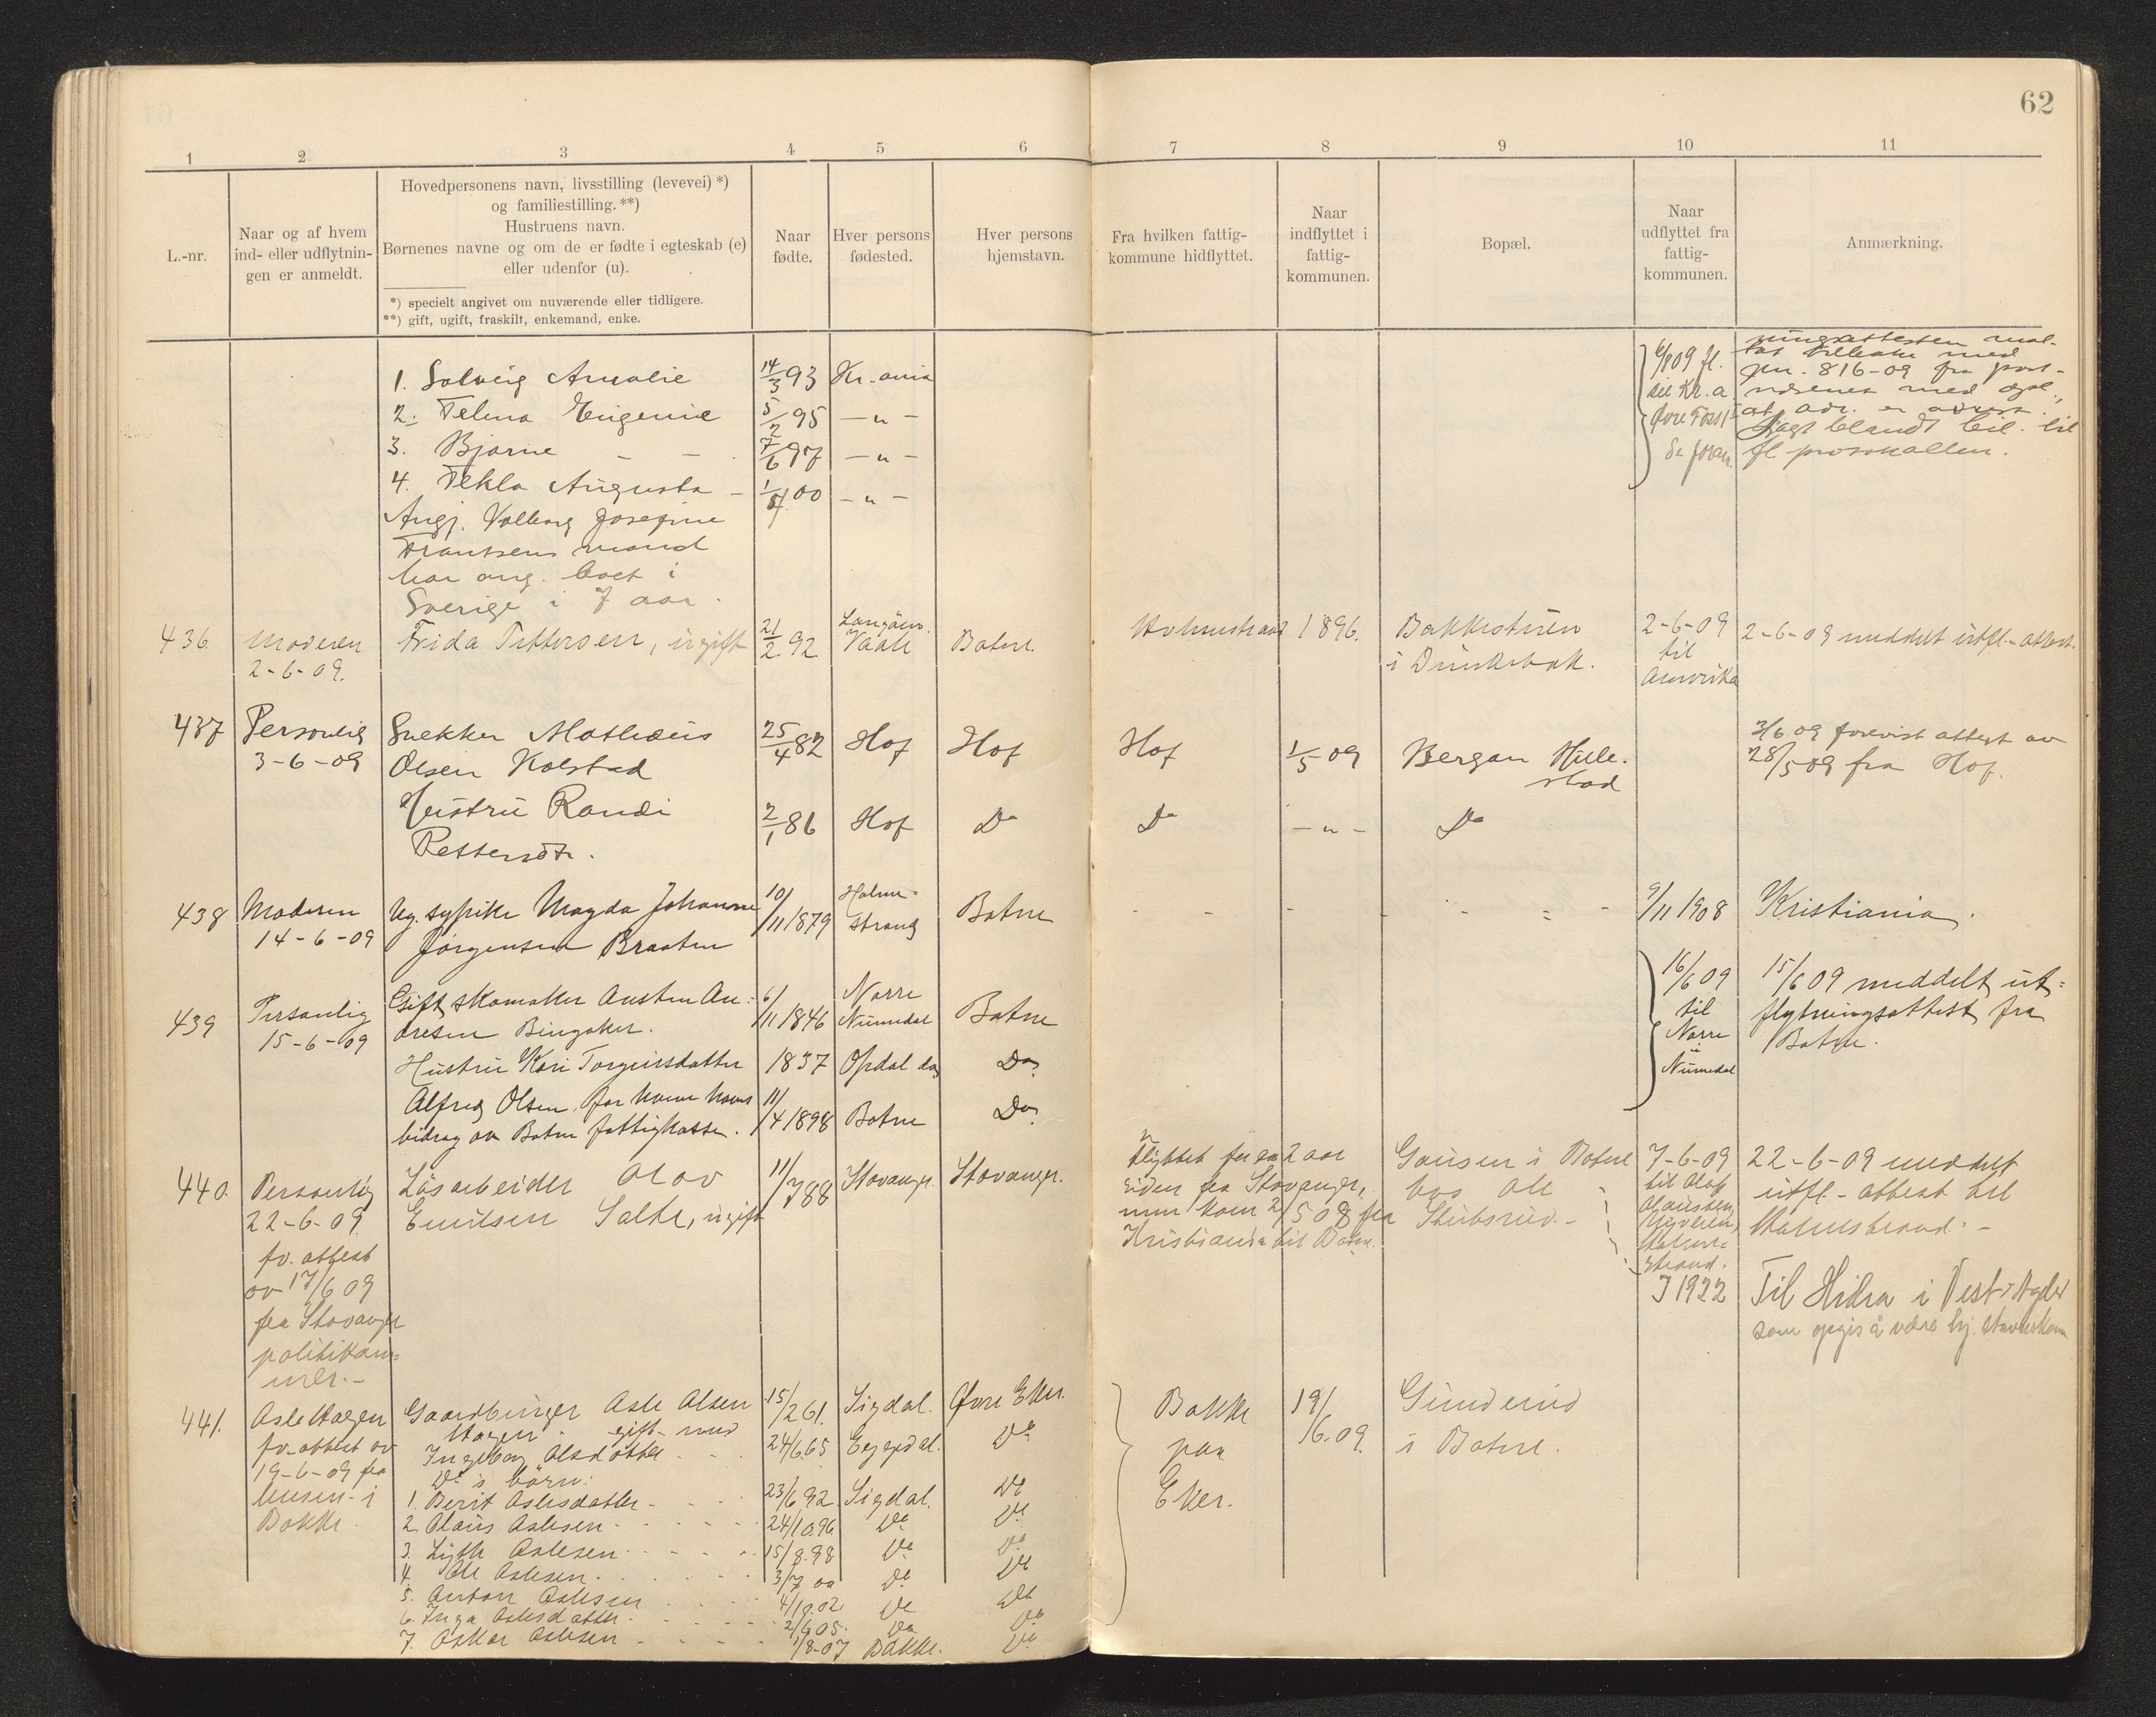 62
1 2 3 4 5 6 7 8 9 10 11
L.-nr.
Naar og af hvem
ind- eller udflytnin-
gen er anmeldt.
Hovedpersonens navn, livsstilling (levevei) *)
og familiestilling. **)
Hustruens navn.
Børnenes navne og om de er fødte i egteskab (e)
eller udenfor (u).
*) specielt angivet om nuværende eller tidligere.
**) gift, ugift, fraskilt, enkemand, enke.
Naar
fødte.
Hver persons
fødested.
Hver persons
hjemstavn.
Fra hvilken fattig-
kommune hidflyttet.
Naar
indflyttet i
fattig-
kommunen.
Bopæl.
Naar
udflyttet fra
fattig-
kommunen.
Anmærkning.
1. Solveig Amalie 14/3 93 Kr.ania
2. Telma Eugenie 5/2 95 — „ —
3. Bjarne — — 7/6 97 — „ —
4. Tekla Augusta — 1/8 00 — „ —
Angj. Valborg Josefine
Frantsens mand
har ang. boet i
Sverige i 7 aar.
6/8 09 fl.
til Kr.a
ningsattesten
tat tilbake med
jnr. 816-09 fra post-
at adr. er
blandt bil. til
fl
436. Moderen Frida Pettersen, ugift 21/2 92 Langøen. Vaale Botne Holmestrand 1896. Bakkestuen 2-6-09 2-6-09 meddelt utfl.-attest.
2-6-09. i Dunkebæk. til
Amerika
437 Personlig Snekker Matheus 25/4 82 Hof Hof Hof 1/5 09 Bergan Hille- 3/6 09 forevist attest av
3-6-09 Olsen Kolstad stad 28/5 09 fra Hof.
Hustru Randi 2/1 86 Hof Do Do — „ — Do
Pettersdtr.
438 Moderen Ug. sypike Magda Johanne 10/11 1879 Holme- Botne - - - - - = - 9/11 1908 Kristiania.
14-6-09 Jørgensen Braaten strand
439 Personlig Gift skomaker Austen An- 6/11 1846 Norre Botne 16/6 09 15/6 09 meddelt ut-
15-6-09 dresen Bingaker. Numedal til flytningsattest fra
Norre Botne.
i
Numedal
Hustru Kari Torgeirsdatter 1837 Opdal do Do.
Alfred Olsen, for hvem haves 11/4 1898 Botne Do.
bidrag av Botne fattigkasse.
440. Personlig Løsarbeider Olov 11/7 88 Stavanger. Stavanger. Flyttet for ca 2 aar Gausen i Botne 7-6-09 22-6-09 meddelt
22-6-09. Emilsen Salte, ugift siden fra Stavanger, hos Ole til Olaf utfl.-attest til
men kom 2/5 08 fra Stubsrud.- Holmestrand.-
Kristiania til Botne. Holme-
strand.
fv. attest
av 17/6 09
fra Stavanger
politikam-
mer.-
7 1922 Til Hidra i Vest-Agder
som opgis å være hj.
441. Asle Hagen Gaardbruger Asle Olsen 15/2 61. Sigdal. Øvre Eker. Bakke 19/6.09. Gunderud
fv. attest av Hagen. gift med paa i Botne.
19-6-09 fra Ingeborg Olsdatter 24/6 65 Eggedal. Do Eker.
lensm. i Do's børn:
Bakke. 1. Berit Aslesdatter - 23/6 92. Sigdal. Do
2. Olaus Aslesen 24/10 96. Do Do
3. Lydth Aslesen 15/8.98 Do Do
4. Ole Aslesen 3/7 00 Do Do
5. Anton Aslesen 4/10.02 Do Do
6. Inga Aslesdatter. 2/6 05. Do Do
7. Oskar Aslesen 1/8-07 Bakke. Do